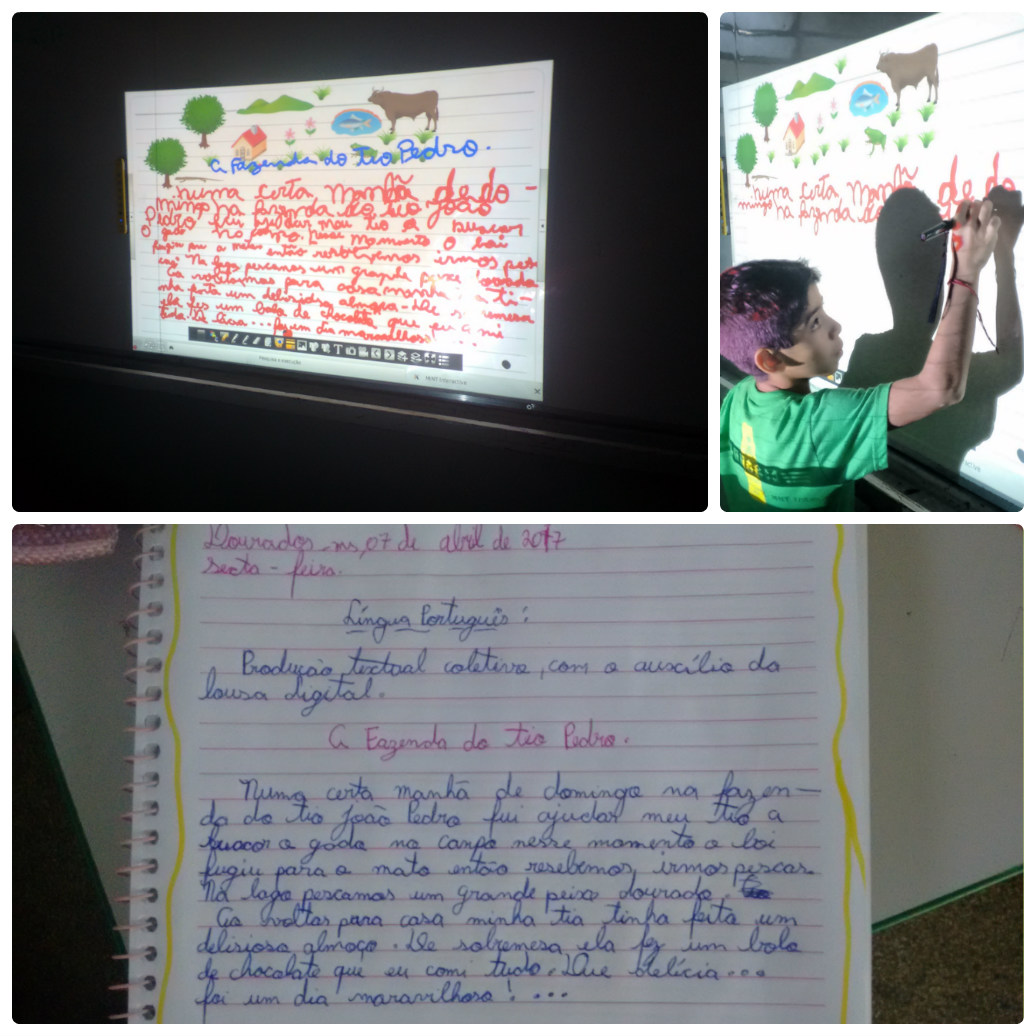 A Fazenda do tio Pedro.
numa certa manhã de do-
mingo na fazenda do tio João
Pedro fui ajudar meu tio a buscar
o gado no campo. nesse momento o boi
fugiu pra o mato então resolvemos irmos pes
car. Na lago pescamos um grande peixe dourado
Ao voltarmos para casa minha ti-
nha feita um delisioso almoço. De sobremesa
ela fes um bolo de chocolate que eu comi
tudo. Que delícia... foi um dia maravilhoso!...
numa certa manhã de do
mingo na fazenda do
Dourados-ms, 07 de abril de 2017
secta-feira.
Língua Português:
Produção textual coletiva, com o auxílio da
lousa digital.
A Fazenda do tio Pedro.
Numa certa manhã de domingo na fazen-
da do tio joão Pedro fui ajudar meu tio a
buscar o gado no campo nesse momento o boi
fugiu para o mato então resebemos, irmos pescar.
Na lago pescamos um grande peixe dourado.
Ao voltar para casa minha tia tinha feita um
delisioso almoço. De sobremesa ela fez um bolo
de chocolate que eu comi tudo. Que delícia...
foi um dia maravilhoso! ...